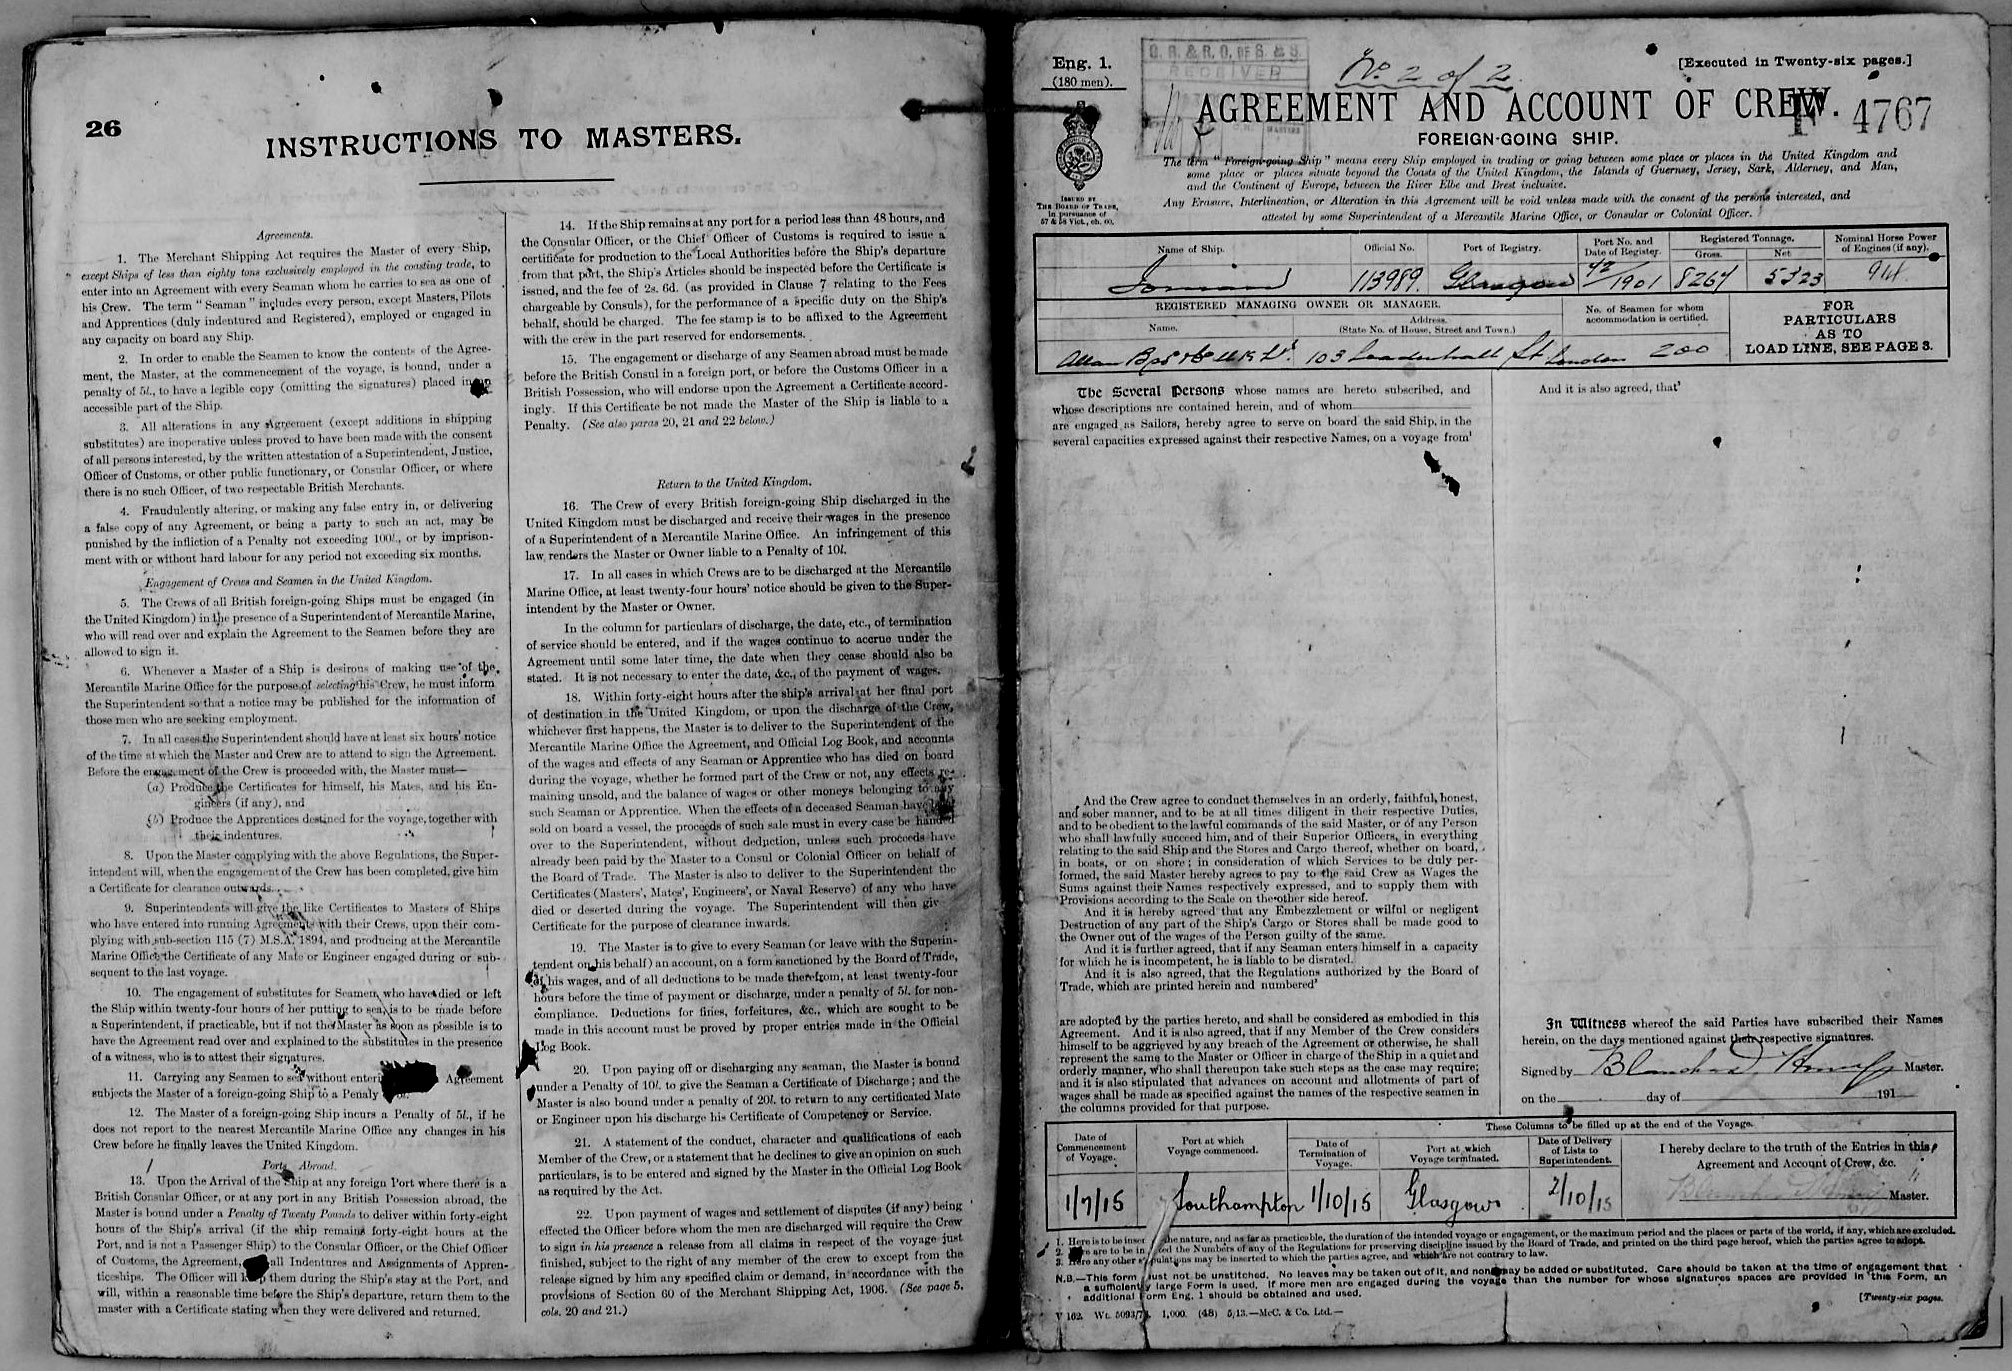 26
INSTRUCTIONS TO MASTERS.
Agreements.
1. The Merchant Shipping Act requires the Master of every Ship,
except Ships of less than eighty tons exclusively employed in the coasting trade, to
enter into an Agreement with every Seaman whom he carries to sea as one of
his Crew. The term "Seaman" includes every person, except Masters, Pilots
and Apprentices (duly indentured and Registered), employed or engaged in
any capacity on board any Ship.
2. In order to enable the Seamen to know the contents of the Agree-
ment, the Master, at the commencement of the voyage, is bound, under a
penalty of 5l., to have a legible copy (omitting the signatures) placed in an
accessible part of the Ship.
3. All alterations in any Agreement (except additions in shipping
substitutes) are inoperative unless proved to have been made with the consent
of all persons interested, by the written attestation of a Superintendent, Justice,
Officer of Customs, or other public functionary, or Consular Officer, or where
there is no such Officer, of two respectable British Merchants.
4. Fraudulently altering, or making any false entry in, or delivering
a false copy of any Agreement, or being a party to such an act, may be
punished by the infliction of a Penalty not exceeding 100l., or by imprison-
ment with or without hard labour for any period not exceeding six months.
Engagement of Crews and Seamen in the United Kingdom.
5. The Crews of all British foreign-going Ships must be engaged (in
the United Kingdom) in the presence of a Superintendent of Mercantile Marine,
who will read over and explain the Agreement to the Seamen before they are
allowed to sign it.
6. Whenever a Master of a Ship is desirous of making use of the
Mercantile Marine Office for the purpose of selecting his Crew, he must inform
the Superintendent so that a notice may be published for the information of
those men who are seeking employment.
7. In all cases the Superintendent should have at least six hours' notice
of the time at which the Master and Crew are to attend to sign the Agreement.
Before the engagement of the Crew is proceeded with, the Master must—
(a) Produce the Certificates for himself, his Mates, and his En-
gineers (if any), and
(b) Produce the Apprentices destined for the voyage, together with
their indentures.
8. Upon the Master complying with the above Regulations, the Super-
intendent will, when the engagement of the Crew has been completed, give him
a Certificate for clearance outwards.
9. Superintendents will give the like Certificates to Masters of Ships
who have entered into running Agreements with their Crews, upon their com-
plying with sub-section 115 (7) M.S.A. 1894, and producing at the Mercantile
Marine Office the Certificate of any Mate or Engineer engaged during or sub-
sequent to the last voyage.
10. The engagement of substitutes for Seamen who have died or left
the Ship within twenty-four hours of her putting to sea, is to be made before
a Superintendent, if practicable, but if not the Master as soon as possible is to
have the Agreement read over and explained to the substitutes in the presence
of a witness, who is to attest their signatures.
11. Carrying any Seamen to sea without enteri Agreement
subjects the Master of a foreign-going Ship to a Penalty
12. The Master of a foreign-going Ship incurs a Penalty of 5l., if he
does not report to the nearest Mercantile Marine Office any changes in his
Crew before he finally leaves the United Kingdom.
Ports Abroad.
13. Upon the Arrival of the Ship at any foreign Port where there is a
British Consular Officer, or at any port in any British Possession abroad, the
Master is bound under a Penalty of Twenty Pounds to deliver within forty-eight
hours of the Ship's arrival (if the ship remains forty-eight hours at the
Port, and is not a Passenger Ship) to the Consular Officer, or the Chief Officer
of Customs, the Agreement, all Indentures and Assignments of Appren-
ticeships. The Officer will keep them during the Ship's stay at the Port, and
will, within a reasonable time before the Ship's departure, return them to the
master with a Certificate stating when they were delivered and returned.
14. If the Ship remains at any port for a period less than 48 hours, and
the Consular Officer, or the Chief Officer of Customs is required to issue a
certificate for production to the Local Authorities before the Ship's departure
from that port, the Ship's Articles should be inspected before the Certificate is
issued, and the fee of 2s. 6d. (as provided in Clause 7 relating to the Fees
chargeable by Consuls), for the performance of a specific duty on the Ship's
behalf, should be charged. The fee stamp is to be affixed to the Agreement
with the crew in the part reserved for endorsements.
15. The engagement or discharge of any Seamen abroad must be made
before the British Consul in a foreign port, or before the Customs Officer in a
British Possession, who will endorse upon the Agreement a Certificate accord-
ingly. If this Certificate be not made the Master of the Ship is liable to a
Penalty. (See also paras 20, 21 and 22 below.)
Return to the United Kingdom.
16. The Crew of every British foreign-going Ship discharged in the
United Kingdom must be discharged and receive their wages in the presence
of a Superintendent of a Mercantile Marine Office. An infringement of this
law renders the Master or Owner liable to a Penalty of 10l.
17. In all cases in which Crews are to be discharged at the Mercantile
Marine Office, at least twenty-four hours' notice should be given to the Super-
intendent by the Master or Owner.
In the column for particulars of discharge, the date, etc., of termination
of service should be entered, and if the wages continue to accrue under the
Agreement until some later time, the date when they cease should also be
stated. It is not necessary to enter the date, &c., of the payment of wages.
18. Within forty-eight hours after the ship's arrival at her final port
of destination in the United Kingdom, or upon the discharge of the Crew,
whichever first happens, the Master is to deliver to the Superintendent of the
Mercantile Marine Office the Agreement, and Official Log Book, and accounts
of the wages and effects of any Seaman or Apprentice who has died on board
during the voyage, whether he formed part of the Crew or not, any effects re-
maining unsold, and the balance of wages or other moneys belonging to any
such Seaman or Apprentice. When the effects of a deceased Seaman have been
sold on board a vessel, the proceeds of such sale must in every case be handed
over to the Superintendent, without deduction, unless such proceeds have
already been paid by the Master to a Consul or Colonial Officer on behalf of
the Board of Trade. The Master is also to deliver to the Superintendent the
Certificates (Masters', Mates', Engineers', or Naval Reserve) of any who have
died or deserted during the voyage. The Superintendent will then give
Certificate for the purpose of clearance inwards.
19. The Master is to give to every Seaman (or leave with the Superin-
tendent on his behalf) an account, on a form sanctioned by the Board of Trade,
of his wages, and of all deductions to be made therefrom, at least twenty-four
hours before the time of payment or discharge, under a penalty of 5l. for non-
compliance. Deductions for fines, forfeitures, &c., which are sought to be
made in this account must be proved by proper entries made in the Official
Log Book.
20. Upon paying off or discharging any seaman, the Master is bound
under a Penalty of 10l. to give the Seaman a Certificate of Discharge; and the
Master is also bound under a penalty of 20l. to return to any certificated Mate
or Engineer upon his discharge his Certificate of Competency or Service.
21. A statement of the conduct, character and qualifications of each
Member of the Crew, or a statement that he declines to give an opinion on such
particulars, is to be entered and signed by the Master in the Official Log Book
as required by the Act.
22. Upon payment of wages and settlement of disputes (if any) being
effected the Officer before whom the men are discharged will require the Crew
to sign in his presence a release from all claims in respect of the voyage just
finished, subject to the right of any member of the crew to except from the
release signed by him any specified claim or demand, in accordance with the
provisions of Section 60 of the Merchant Shipping Act, 1906. (See page 5,
cols. 20 and 21.)
Eng. 1.
(180 men).
G. R. & R. O. OF S. & S.
RECEIVER
No 2 of 2
[Executed in Twenty-six pages.]
AGREEMENT AND ACCOUNT OF CREW.
F 4767
FOREIGN-GOING SHIP.
ISSUED BY
THE BOARD OF TRADE,
in pursuance of
57 & 58 Vict., ch. 60.
The term "Foreign-going Ship" means every Ship employed in trading or going between some place or places in the United Kingdom and
some place or places situate beyond the Coasts of the United Kingdom, the Islands of Guernsey, Jersey, Sark, Alderney, and Man,
and the Continent of Europe, between the River Elbe and Brest inclusive.
Any Erasure, Interlineation, or Alteration in this Agreement will be void unless made with the consent of the persons interested, and
attested by some Superintendent of a Mercantile Marine Office, or Consular or Colonial Officer.
Name of Ship. Official No. Port of Registry. Port No. and Date of Register. Registered Tonnage. Gross. Net. Nominal Horse Power of Engines (if any).
Ionian 113989. Glasgow 42/1901 8267 5323 941
REGISTERED MANAGING OWNER OR MANAGER.
Name. Address. (State No. of House, Street and Town.)
No. of Seamen for whom accommodation is certified.
Allan Bros & Co U.K Ld. 103 Leadenhall St London 200
FOR
PARTICULARS
AS TO
LOAD LINE, SEE PAGE 3.
The Several Persons whose names are hereto subscribed, and
whose descriptions are contained herein, and of whom
are engaged as Sailors, hereby agree to serve on board the said Ship, in the
several capacities expressed against their respective Names, on a voyage from¹
And the Crew agree to conduct themselves in an orderly, faithful, honest,
and sober manner, and to be at all times diligent in their respective Duties,
and to be obedient to the lawful commands of the said Master, or of any Person
who shall lawfully succeed him, and of their Superior Officers, in everything
relating to the said Ship and the Stores and Cargo thereof, whether on board,
in boats, or on shore; in consideration of which Services to be duly per-
formed, the said Master hereby agrees to pay to the said Crew as Wages the
Sums against their Names respectively expressed, and to supply them with
Provisions according to the Scale on the other side hereof.
And it is hereby agreed that any Embezzlement or wilful or negligent
Destruction of any part of the Ship's Cargo or Stores shall be made good to
the Owner out of the wages of the Person guilty of the same.
And it is further agreed, that if any Seaman enters himself in a capacity
for which he is incompetent, he is liable to be disrated.
And it is also agreed, that the Regulations authorized by the Board of
Trade, which are printed herein and numbered²
are adopted by the parties hereto, and shall be considered as embodied in this
Agreement. And it is also agreed, that if any Member of the Crew considers
himself to be aggrieved by any breach of the Agreement or otherwise, he shall
represent the same to the Master or Officer in charge of the Ship in a quiet and
orderly manner, who shall thereupon take such steps as the case may require;
and it is also stipulated that advances on account and allotments of part of
wages shall be made as specified against the names of the respective seamen in
the columns provided for that purpose.
And it is also agreed, that³
In Witness whereof the said Parties have subscribed their Names
herein, on the days mentioned against their respective signatures.
Signed by Master.
on the day of 191
These Columns to be filled up at the end of the Voyage.
Date of Commencement of Voyage. Port at which Voyage commenced. Date of Termination of Voyage. Port at which Voyage terminated. Date of Delivery of Lists to Superintendent.
I hereby declare to the truth of the Entries in this
Agreement and Account of Crew, &c.
1/7/15 Southampton 1/10/15 Glasgow 2/10/15 Master.
1. Here is to be inser the nature, and as far as practicable, the duration of the intended voyage or engagement, or the maximum period and the places or parts of the world, if any, which are excluded.
2. Here are to be in ted the Numbers of any of the Regulations for preserving discipline issued by the Board of Trade, and printed on the third page hereof, which the parties agree to adopt.
3. Here any other stipulations may be inserted to which the parties agree, and which are not contrary to law.
N.B.—This form must not be unstitched. No leaves may be taken out of it, and none may be added or substituted. Care should be taken at the time of engagement that
a sufficiently large Form is used. If more men are engaged during the voyage than the number for whose signatures spaces are provided in this Form, an
additional Form Eng. 1 should be obtained and used.
[Twenty-six pages.
V 162. Wt. 5093/7 1,000. (48) 5/13.—McC. & Co. Ltd.—